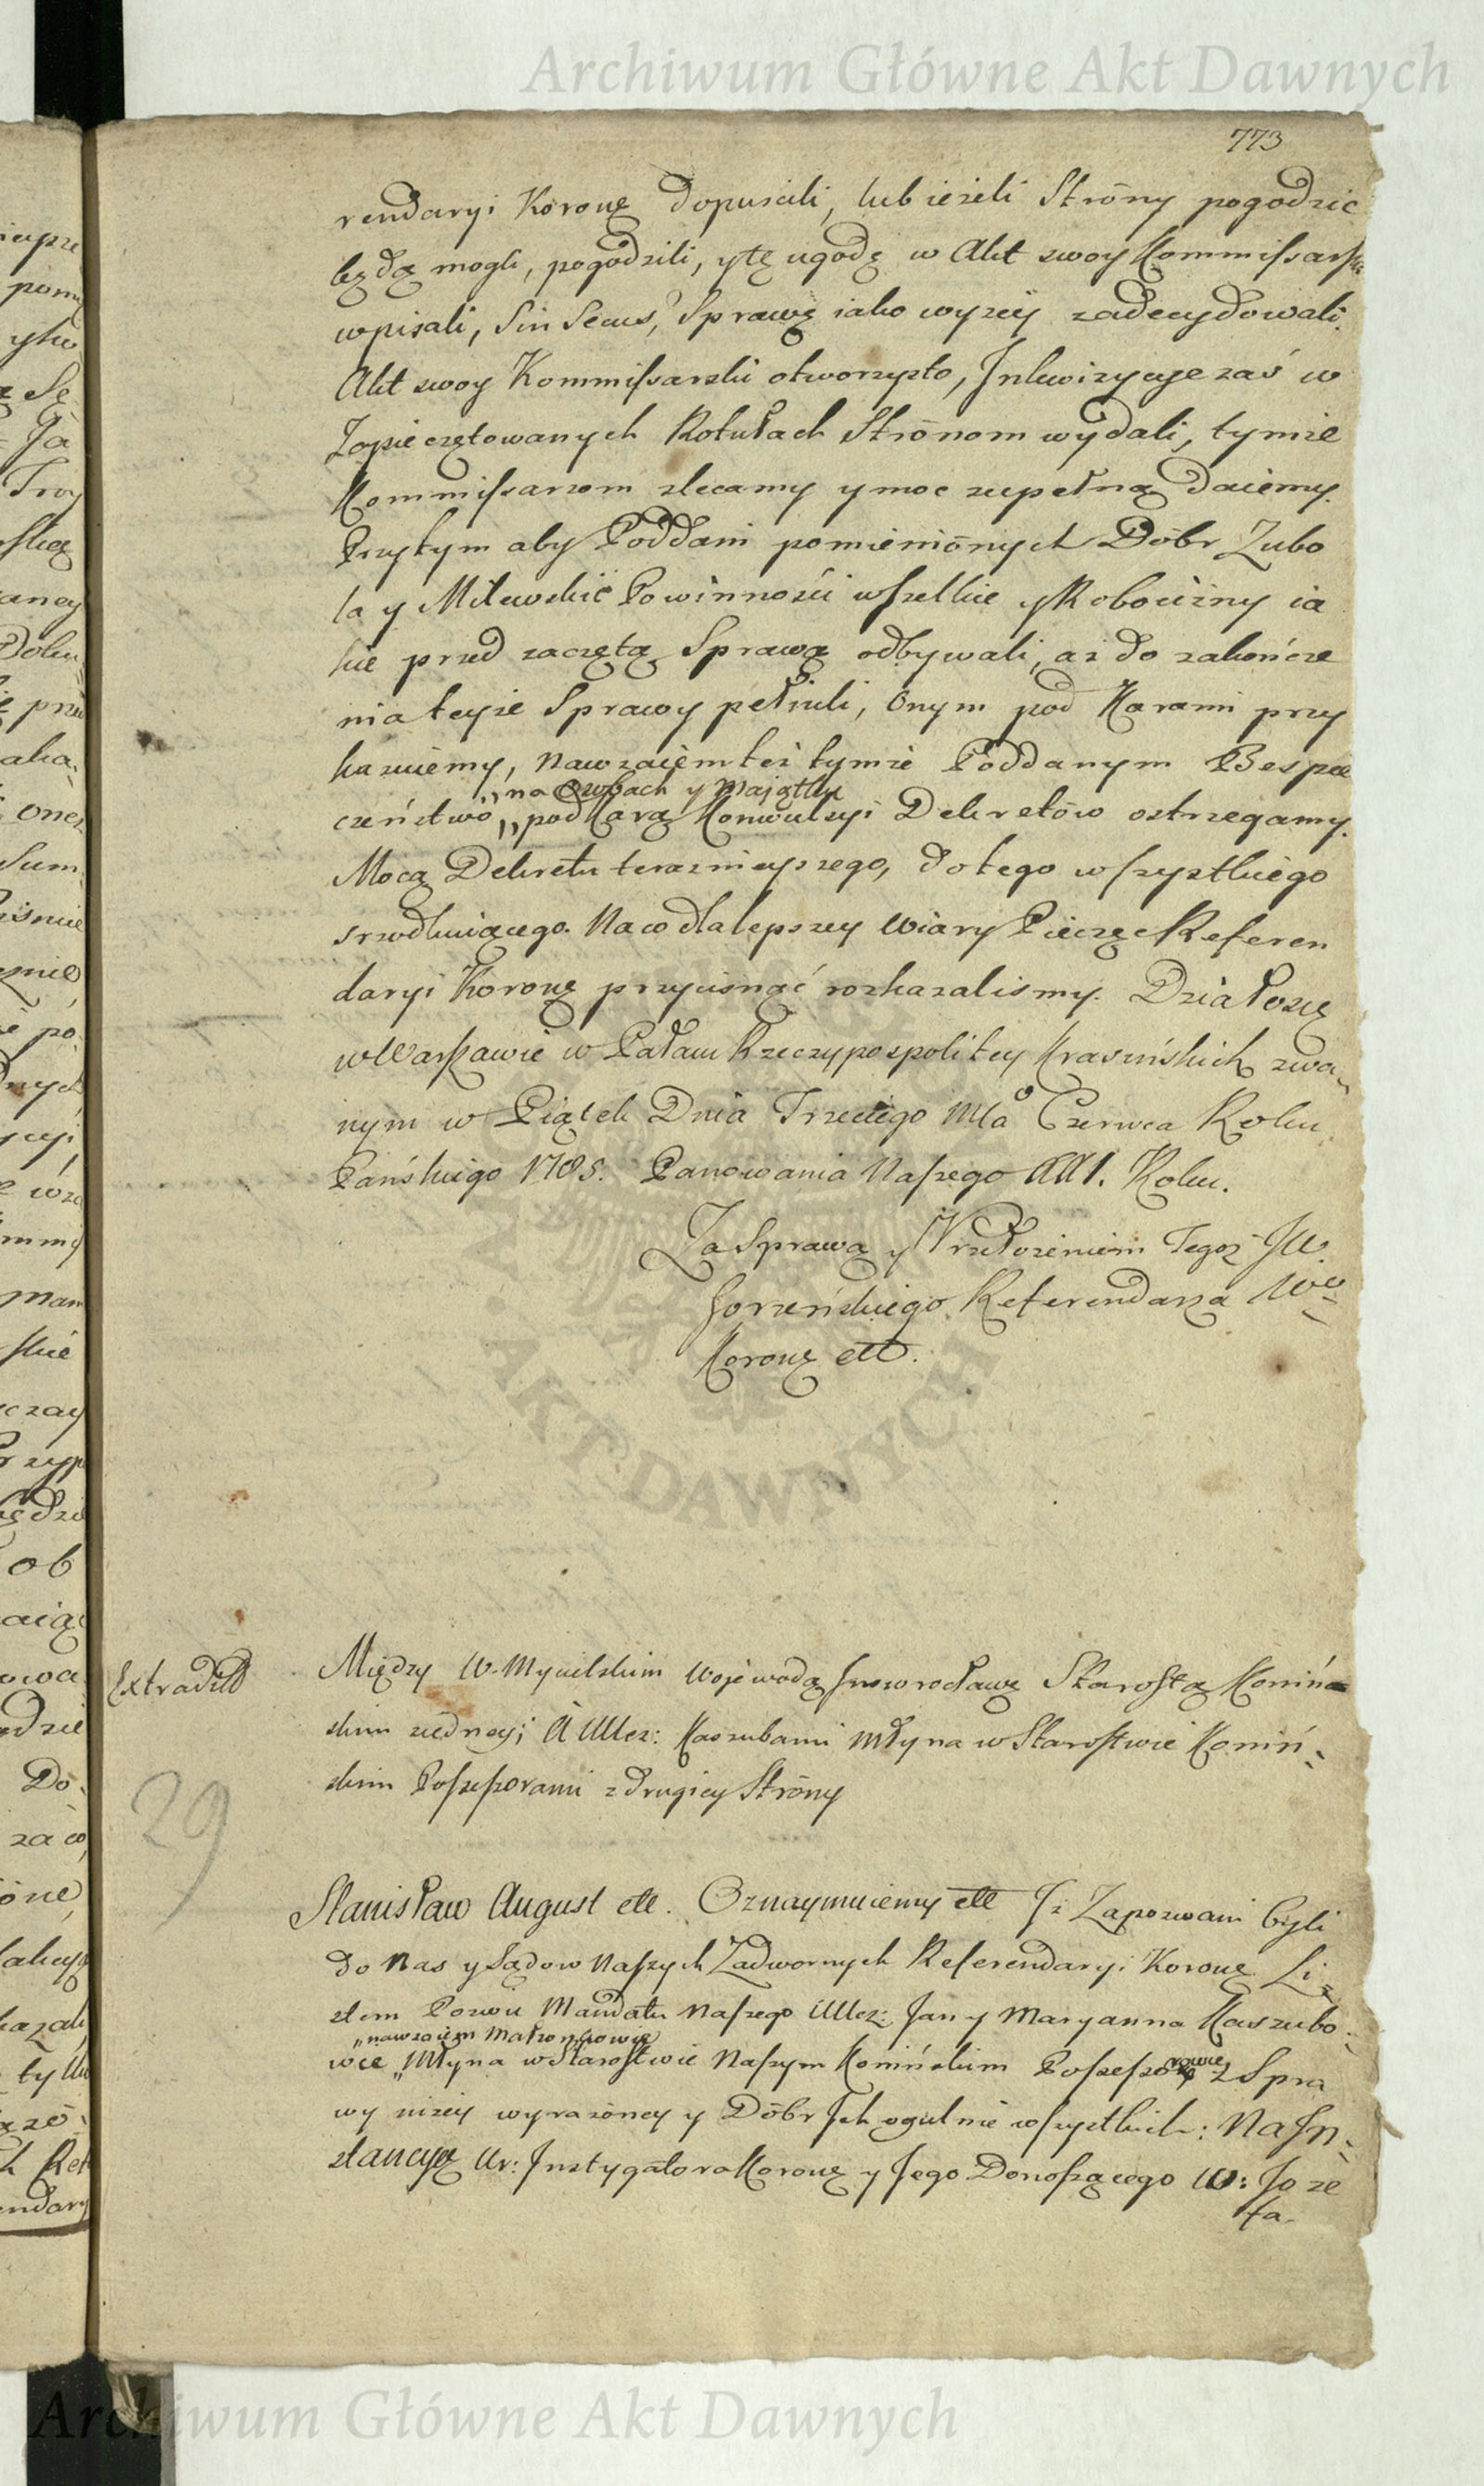 Archiwum Główne Akt Dawnych
773
rendaryi Koronę dopuscili, lub ieżeli Strōny pogodzic
będą mogli, pogodzili, y tę ugodę w Akt swoy Kommissarski
wpisali, Sin Secus, Sprawę iako wyzey zadecydowali.
Akt swoy Kommissarski otworzysto, Inkwizycye zaś w
Zapieczętowanych Rotułach Strōnom wydali, tymże
Kommissarzom zlecamy y moc zupełną daiemy.
Przytym aby Poddani pomieniōnych Dōbr Zubo
la y Milewskie Powinności wszelkie y Robocizny ia
kie przed zaczętą Sprawą odbywali, az do zakończe
nia teyże Sprawy pełnili, Onym pod Karami przy
kazuiemy, nawzaiem też tymże Poddanym Bespie
„na Osobach y Majątku
czeństwo „pod Karą Konwulsyi Dekretōw ostrzegamy.
Mocą Dekretu teraznieyszego, do tego wszystkiego
srzodkuiącego. Na co dla lepszey Wiary Pieczęć Referen
daryi Koronę przycisnąć rozkazalismy. Działo się
w Warszawie w Pałacu Rzeczypospolitey Krasińskich zwa
nym w Piątek Dnia Trzeciego Mca Czerwca Roku
Pańskiego 1785. Panowania Naszego XXI. Roku.
Za Sprawą y Przełożeniem Tegoż JW.
Gorzeńskiego Referendarza Wgo
Koronę ett.
AKT DAWNYCH
Extradit
Między W. Mycielskim Wojewodą Inowrocławę Starostą Konińs
skim z iedney; A UUcz: Kaszubami Młyna w Starostwie Koniń
skim Possessorami z drugiey Strōny
29
Stanisław August ett. Oznaymuiemy ett Iż Zapozwani byli
do Nas y Sądow Naszych Zadwornych Referendaryi Koronę Li
stem Pozwu Mandatu Naszego UUcz: Jan y Maryanna Kaszubo
„nawzaiem Małzonkowie
wie „Młyna w Starostwie Naszym Konińskim Possessorowie z Spra
wy niżey wyrażōney y Dōbr Ich ogulnie wszystkich: Na In
stancyą Ur: Instygatora Koronę y Jego Donoszącego W: Joze
fa.
Archiwum Główne Akt Dawnych